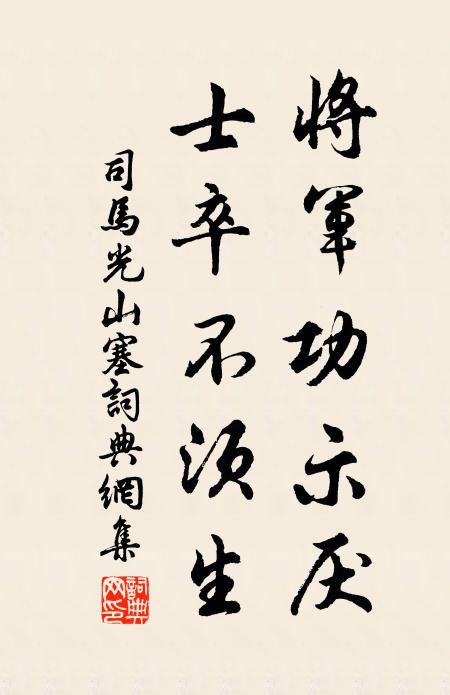 將軍功示厌
士卒不须生
司馬光山塞詞典網集
詞典
网印